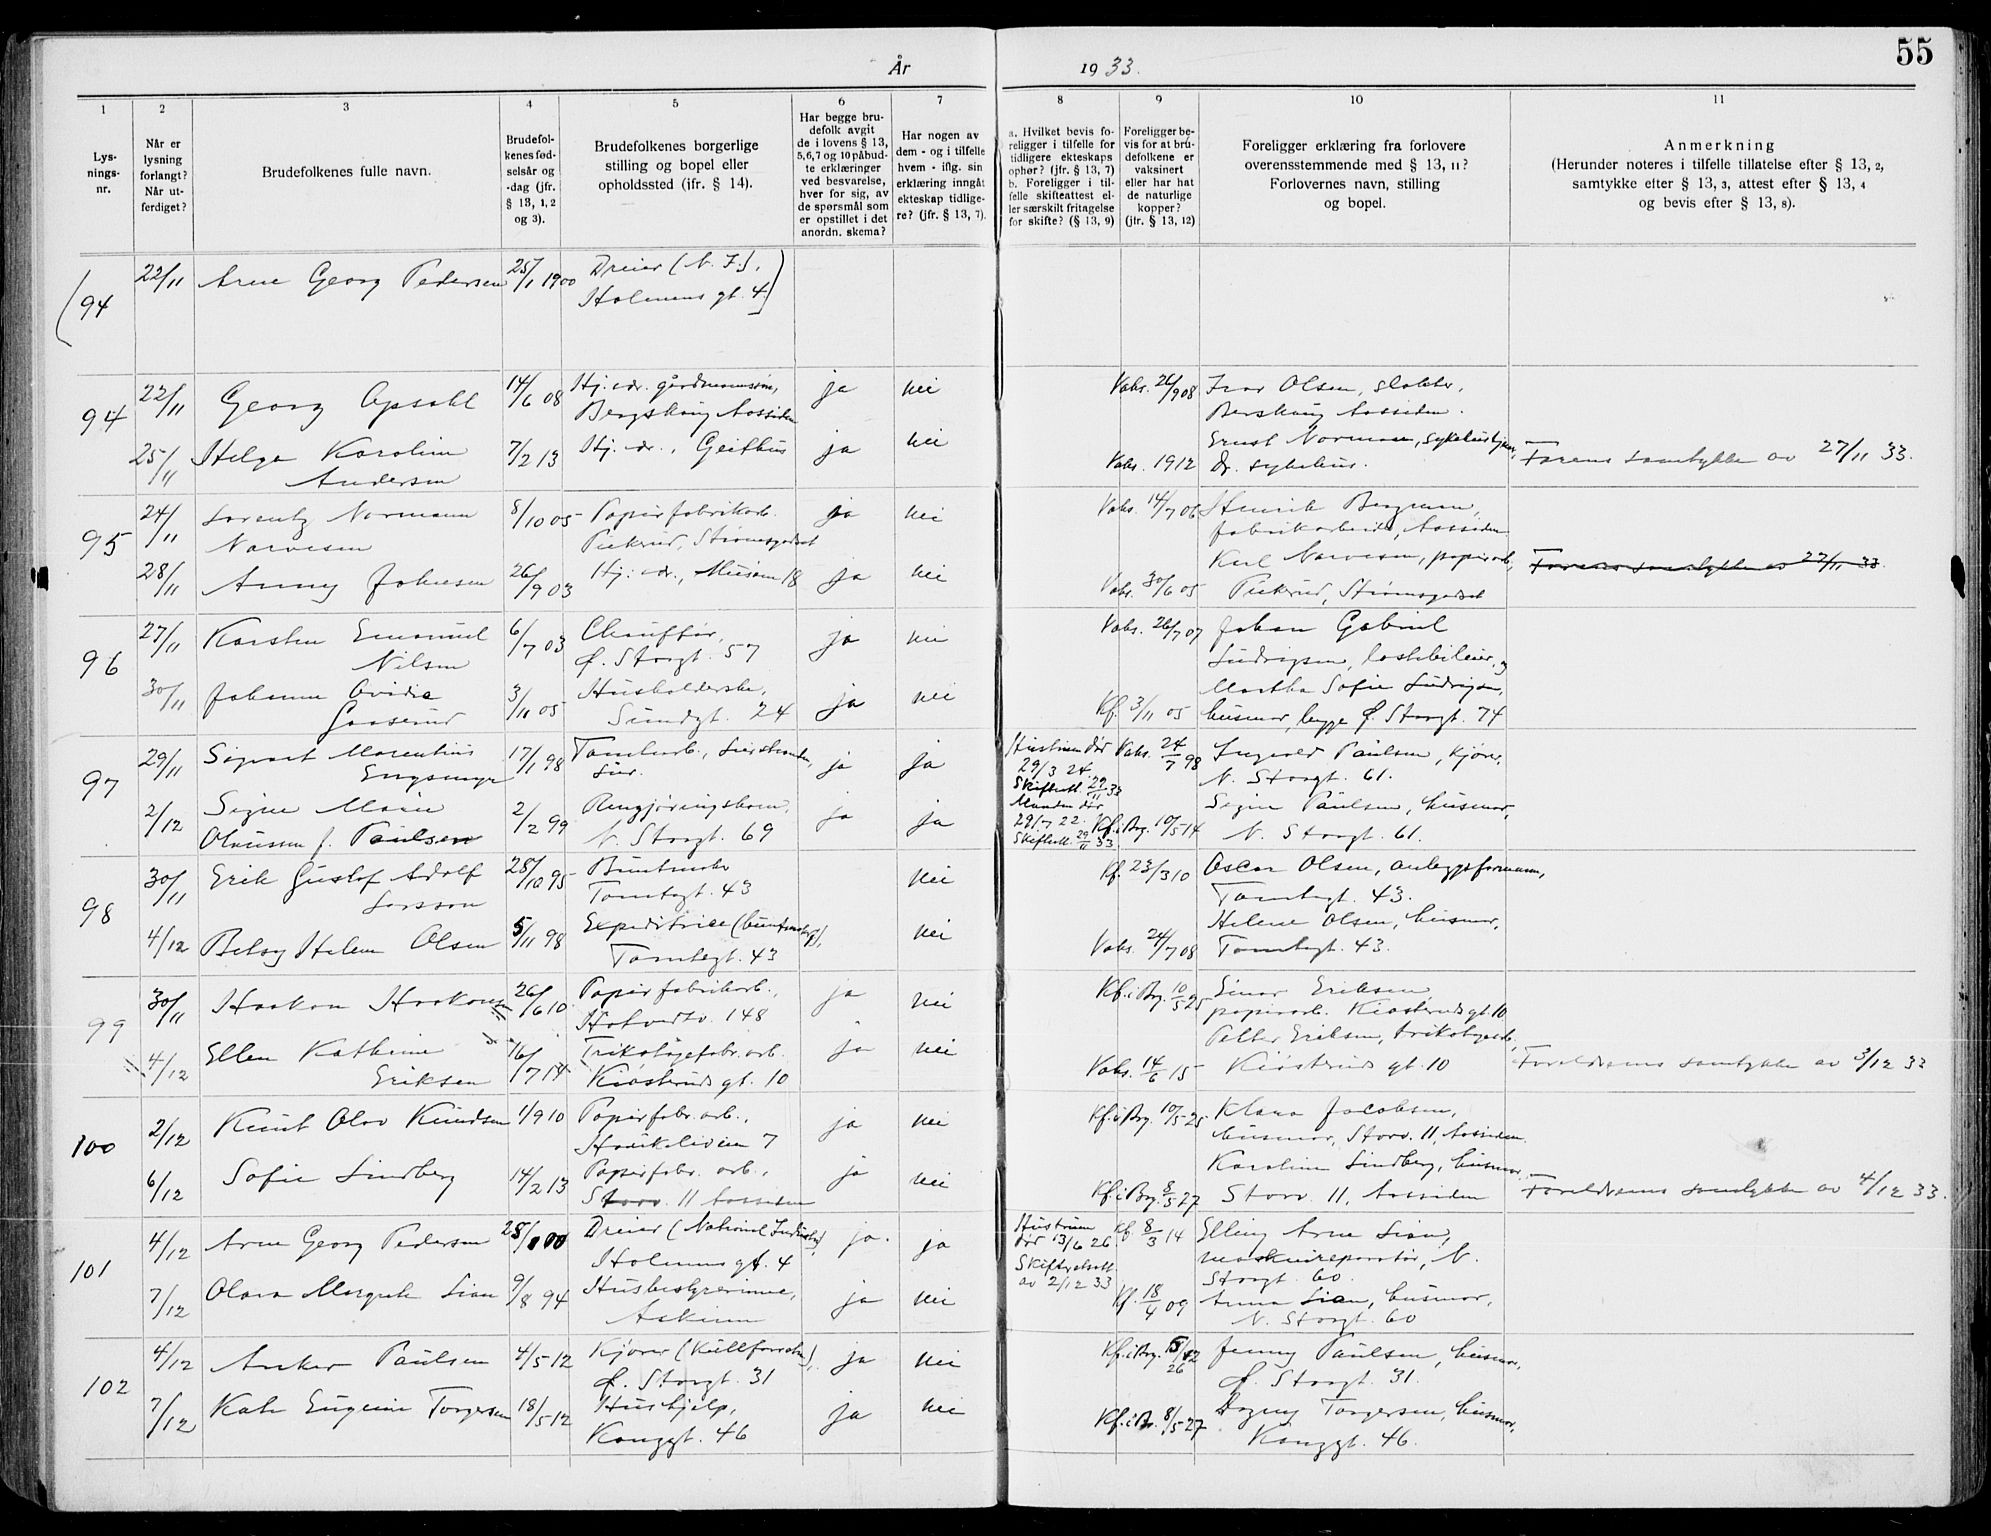 55
År 1933.
1 2 3 4 5 6 7 8 9 10 11
Lysningsnr.
Når er lysning forlangt? Når utferdiget?
Brudefolkenes fulle navn.
Brudefolkenes fødselsår og -dag (jfr. § 13, 1, 2 og 3).
Brudefolkenes borgerlige stilling og bopel eller opholdssted (jfr. § 14).
Har begge brudefolk avgit de i lovens § 13, 5, 6, 7 og 10 påbudte erklæringer ved besvarelse, hver for sig, av de spørsmål som er opstillet i det anordn. skema?
Har nogen av dem - og i tilfelle hvem - iflg. sin erklæring inngåt ekteskap tidligere? (jfr. § 13, 7).
a. Hvilket bevis foreligger i tilfelle for tidligere ekteskaps ophør? (jfr. § 13, 7) b. Foreligger i tilfelle skifteattest eller særskilt fritagelse for skifte? (§ 13, 9)
Foreligger bevis for at brudefolkene er vaksinert eller har hat de naturlige kopper? (jfr. § 13, 12)
Foreligger erklæring fra forlovere overensstemmende med § 13, 11? Forlovernes navn, stilling og bopel.
Anmerkning (Herunder noteres i tilfelle tillatelse efter § 13, 2, samtykke efter § 13, 3, attest efter § 13, 4 og bevis efter § 13, 8).
(94 22/11 Arne Georg Pedersen 25/1 1900 Dreier (N. I.),
Holmens gt. 4)
94 22/11 Georg Opsahl 14/6 08 Hj. v. gårdmannssøn, ja nei Vaks. 26/9 08 Ivar Olsen, slakter,
Bergskaug Aassiden Berskaug Aassiden.
25/11 Helga Karoline 7/2 13 Hj. v., Geithus ja nei Ernst Norman,
Andersen Vaks. 1912 Dr. sykehus. Farens samtykke av 27/11 33.
95 24/11 Lorentz Normann 8/10 05 Papirfabrikarb. ja nei Vaks. 14/7 06 Henrik Bergmann,
Narvesen Pukerud, Strømsgodset fabrikarbeider, Aassiden
28/11 Anny Johnsen 26/9 03 Hj. v., Museum 18 ja nei Karl Narvesen, papirarb., Farens samtykke av 27/11 33.
Vaks. 30/6 05 Pukerud, Strømsgodset
96 27/11 Karsten Emanuel 6/7 03 Chauffør, ja nei Vaks. 26/7 07 Johan Gabriel
Nilsen Ø. Storgt. 57 Ludvigsen, lastebileier, og
30/11 Johanne Ovidia 3/11 05 Husholderske, ja nei Martha Sofie Ludvigsen,
Gaaserud Sundgt. 24 Kf. 3/11 05 husmor, begge Ø. Storgt. 74
97 29/11 Sigvart Marentius 17/1 98 Tomtearb., Lierstranden, ja ja Hustruen dør Vaks. 24/7 98 Ingvald Paulsen, kjører,
Engsenger Lier. 29/3 24. N. Storgt. 61.
Skifteatt. 29/11 33
2/12 Signe Marie 2/2 99 Rengjøringskone, ja ja Mannen dør Signe Paulsen, husmor,
Olaussen f. Paulsen N. Storgt. 69 29/7 22. Kf. i Brg. 10/5 14 N. Storgt. 61.
Skifteatt. 29/11 33
98 30/11 Erik Gustaf Adolf 28/10 95 Buntmaker nei Kf. 23/3 10 Oscar Olsen, anleggsformann,
Larsson Tomtegt. 43 Tomtegt. 43.
4/12 Betsy Helene Olsen 5/11 98 Expeditrice nei Helene Olsen, husmor,
Tomtegt. 43 Vaks. 24/7 08 Tomtegt. 43.
99 30/11 Haakon Haakonsen 26/6 10 Papirfabrikarb., ja nei Kf. i Brg. 10/5 25 Einar Eriksen
Hotvedtv. 148 papirarb. Kiøsteruds gt. 10
4/12 Ellen Kathrine 16/7 14 Trikotagefabr. arb. ja nei Petter Eriksen,
Eriksen Kiøsteruds gt. 10 Vaks. 14/6 15 Kiøsterud gt. 10 Foreldrenes samtykke av 3/12 33
100 2/12 Knut Olav Knudsen 1/9 10 Papirfabr. arb., ja nei Kf. i Brg. 10/5 25 Klara Jacobsen,
7 husmor, Storv. 11, Aassiden.
6/12 Sofie Lindberg 14/2 13 Papirfabr. arb., ja nei Karoline Lindberg, husmor,
Storv. 11 Aassiden Kf. i Brg. 8/5 27 Storv. 11, Aassiden Foreldrenes samtykke av 4/12 33.
101 4/12 Arne Georg Pedersen 25/1 00 Dreier (National Industri), ja. ja Hustruen Kf. 8/3 14 Elling Arne Lian,
Holmens gt. 4 dør 13/6 26 maskinreparatør, N.
Skifteatt. Storgt. 60.
7/12 Olava Margrete Lian 9/8 94 Husbestyrerinne, ja nei av 2/12 33 Kf. 18/4 09 Anna Lian, husmor,
Askim N. Storgt. 60
102 4/12 Anker Paulsen 4/5 12 Kjører ja nei Kf. i Brg. Jenny Paulsen, husmor,
Ø. Storgt. 31 26 Ø. Storgt. 31.
7/12 Kate Eugenie Torgersen 18/5 12 Hushjelp, ja nei Kf. i Br. 8/5 27 Dagny Torgersen, husmor,
Konggt. 46 Konggt. 46.